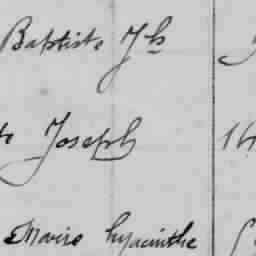 Baptiste Jh
Joseph 14
Marie hyacinthe